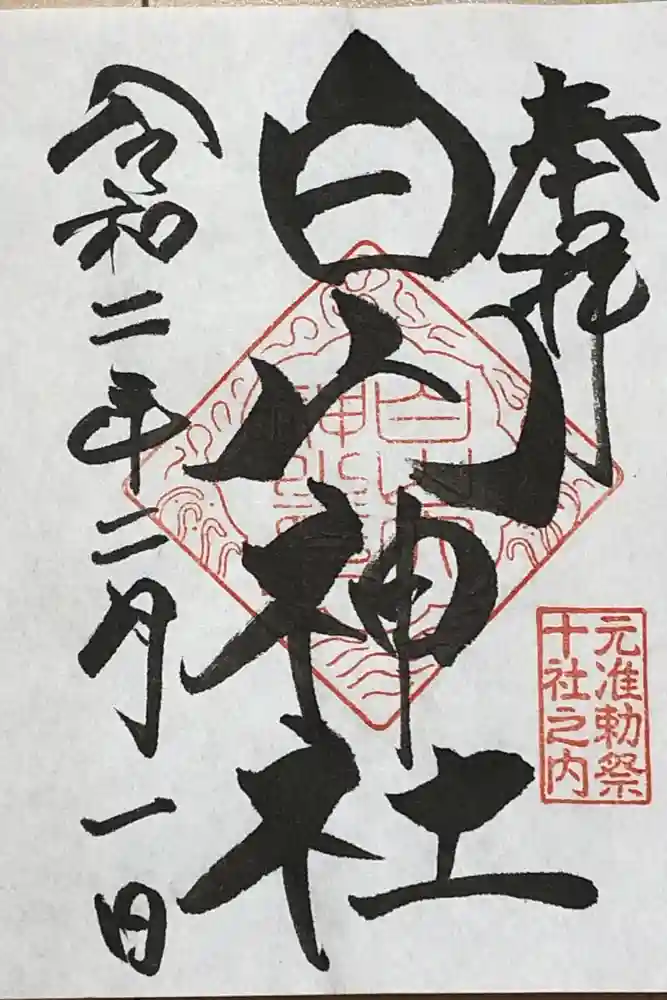 奉拝
白山神社
元准勅祭
十社之内
令和二年二月一日